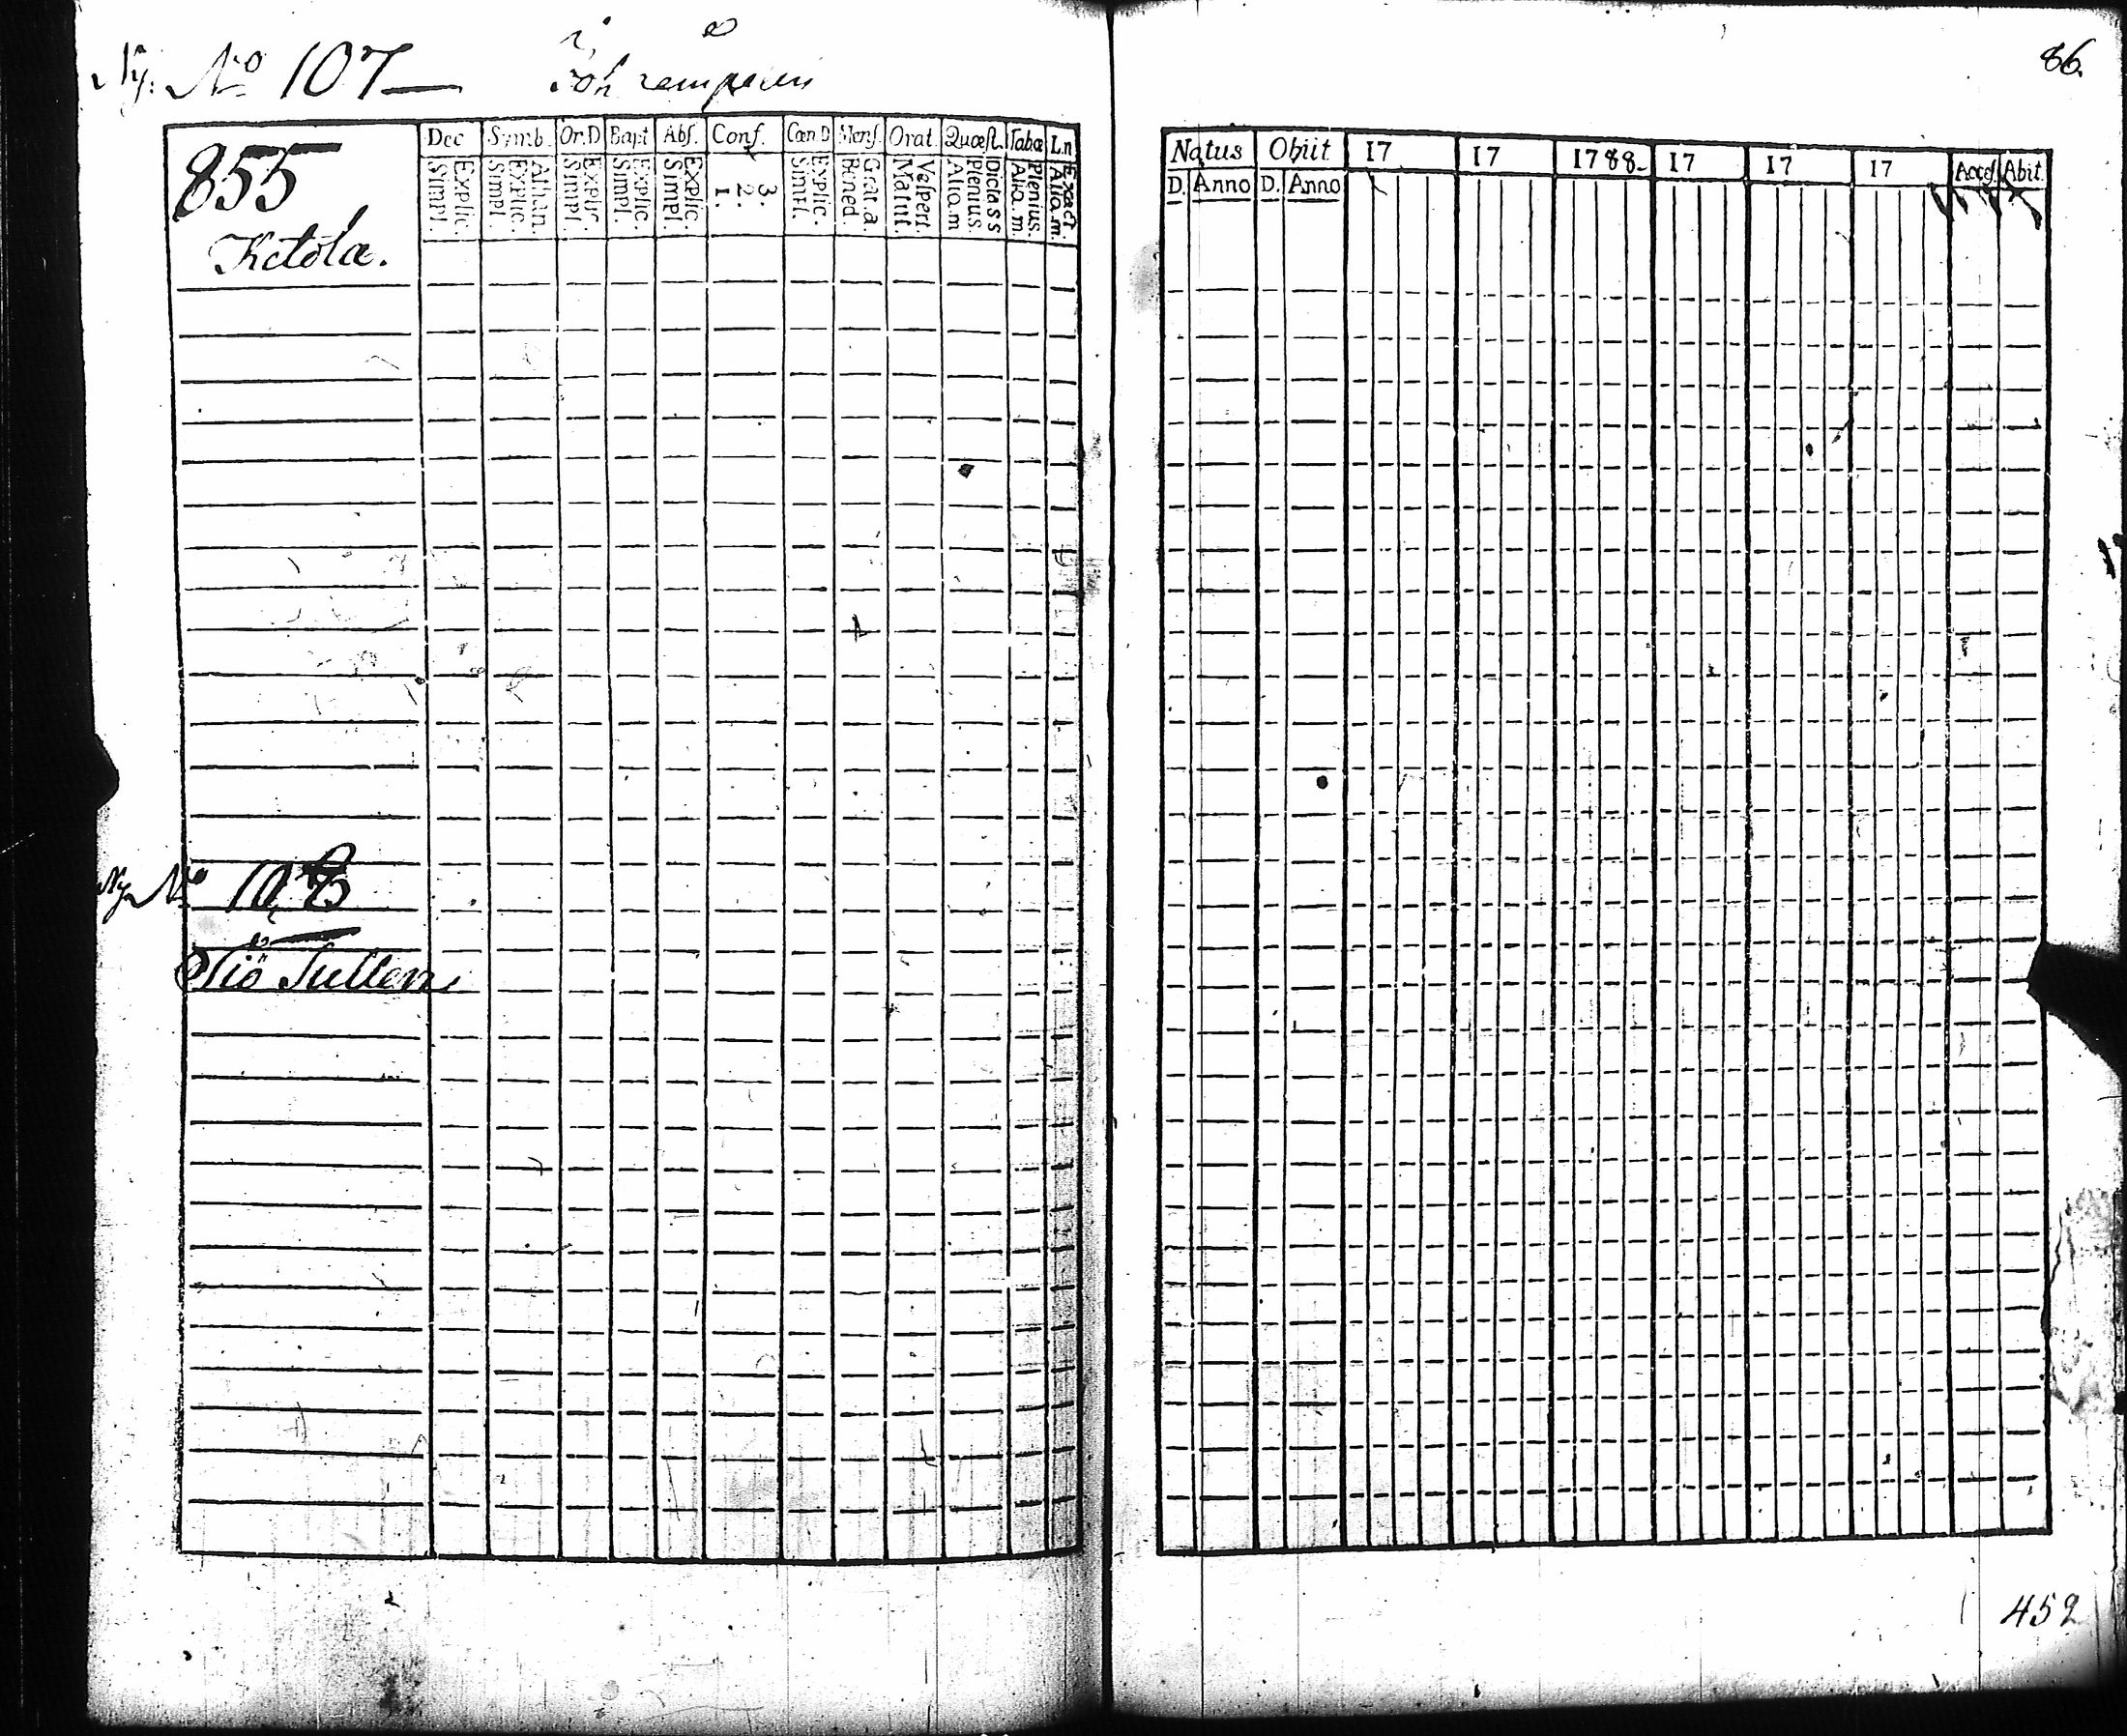 Ny: No 107
86.
855
Ketola.
Dec Symb. Or.D Bapt Abs. Conf. Cœn.D Mens. Orat. Quæst. Tabæ L.n
Explic. Simpl.
Athan. Explic. Simpl.
Explic. Simpl.
Explic. Simpl.
Explic. Simpl.
3. 2. 1.
Explic. Simpl.
Grat.a. Bened.
Vespert. Matut.
Dict.a S S Plenius. Aliq.m
Plenius. Aliq.m.
Exact. Aliq.m.
Natus Obiit 17 17 1788- 17 17 17 Acces. Abit.
D. Anno D. Anno
Ny No 108
452